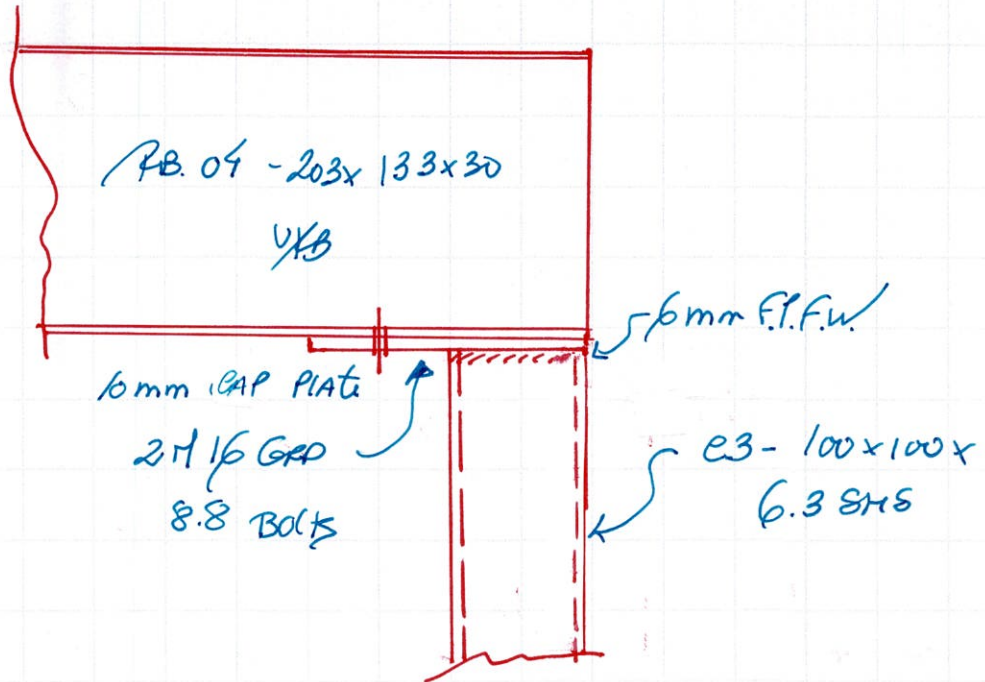 RB.04 - 203x133x30
UKB
6mm F.P.F.W.
10mm CAP PLATE
2M16 GRD
8.8 Bolts
C3 - 100x100x
6.3 SHS